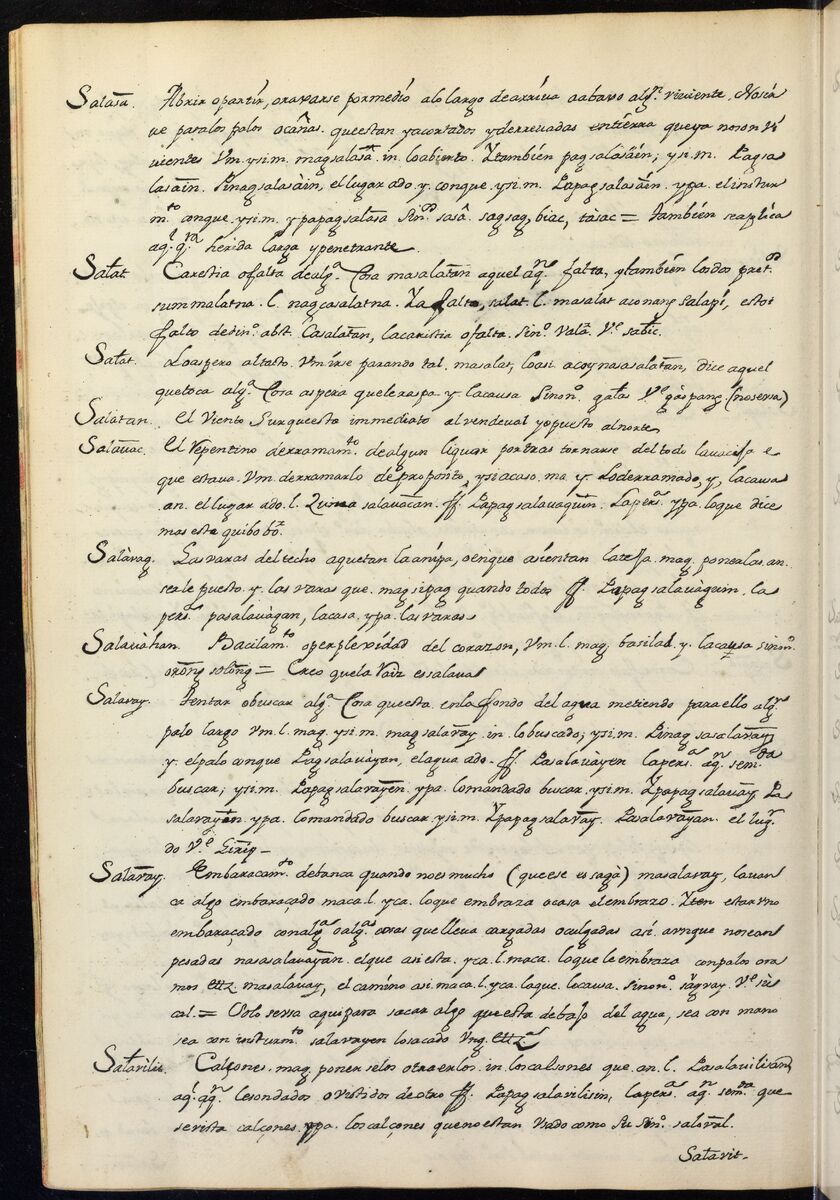 Salasa. Abrir o partir, o ravarse por medio alo largo de arriva aabaxo algn. viviente. No sir
ve para los palos o cañas. que estan ya cortados y derrevadas en tierra que ya no son vi
vientes Vm. ysi.m. mag salasa. in. lo abierto. Ytambien pag salasáin; ysi.m. Pagsa
lasain. Pinag salasáin, el lugar ado. y. con que. ysi.m. Papag salasáin. ypa. el instur
mto. con que. ysi.m. y papag salasa Sinod. sasá. sag sag, biac, tasac = tambien se aplica
aql. qn. herida larga y penetrante.
Salat. Carestia o falta de alga. Cosa masalatan aquel aqn. falta, y tambien los dos pretod.
summalatna. l. nagcasalatna. Ya falto, salat. l. masalat aco nang salapi, estoi
falto de dino. abst. Casalatan, la caristia o falta. Sino. Vala. Ve. sabic.
Salat. Lo aspero al tacto. Vm irse parando tal. masalat, lo asi. acoy nasasalatan, dice aquel
que toca alga. Cosa aspera que le raspa. y. la causa Sinono. gatas Ve. gaspang. (no serva)
Salatan. El Viento Surqueste immediato al vendeval y opuesto al norte.
Salauac. El Repentino derramamto. de algun liquor por tras tornarse del todo la vacija e
que estava. Vm. derramarlo de proposito, ysi acaso. ma. y. Lo derramado, y, la causa
an. el lugar ado. l. Quina salavacan. ff. Papag salavaquin. La pera. ypa. lo que dice
mas este quibo bo.
Salàvag. Las varas del techo a que tan la anipa, o en que asientan la texa. mag. ponerlas. an.
ser le puesto. y. las varas que. mag sipag quando todos ff. Papag salavàguin. la
pera. pasalavàgan, la casa. ypa. las varas
Salauàhan. Bacilamto. o perplexidad del corazon, Vm. l. mag. basilar. y. la causa sinono.
orong solong = Creo que la Raiz es salava
Salavay. Tentar o buscar alga. Cosa que esta. en lo fondo del agua metiendo para ello algn.
palo largo Vm. l. mag. ysi.m. mag salavay. in. lo buscado; ysi.m. Pinag sasalavay
y. el palo con que Pagsalavàyan, el agua ado. ff. Pasalavàyen la pera. aqn. semda.
buscar; ysi.m. Papag salavayen. ypa. lo mandado buscar. ysi.m. Ypapag salavay Pa
salavayen. ypa. lo mandado buscar. ysi.m. Ypapag salavay. Pasalavayan. el lugr.
do Ve. Giriq –
Salavay. Embaracamto. de banca quando no es mucho (que ese es sagà) masalavay, la van
ca algo embaraçado maca. l. yca. lo que embraza o casa el embrazo. Yten estar uno
embaraçado con alga. o algas. cosas que lleva cargadas o culgadas asi. aunque no sean
pesadas nasasalavayan. el que asi esta. yca. l. maca. lo que le embraza con palos o ra
mos ettz. masalavay, el camino asi. maca. l. yca. la que. lo causa. Sinono. sagvay. Ve. sù
cal. = Solo serva aqui para sacar algo que esta debajo del agua, sea con mano
sea con insturmto. salavayen lo sacado Vng. ettz.
Salavilis. Calçones. mag. ponerselos. otraerlos. in. los calsones que. an. l. Pasalavilisan
aql. aqn. le son dados o vestidos de otro ff. Papag salavilisin, la pera. aqn. semda. que
se vista calçones. ypa. los calçones que no estan Usado como Su Sino. salaval.
Salavit.